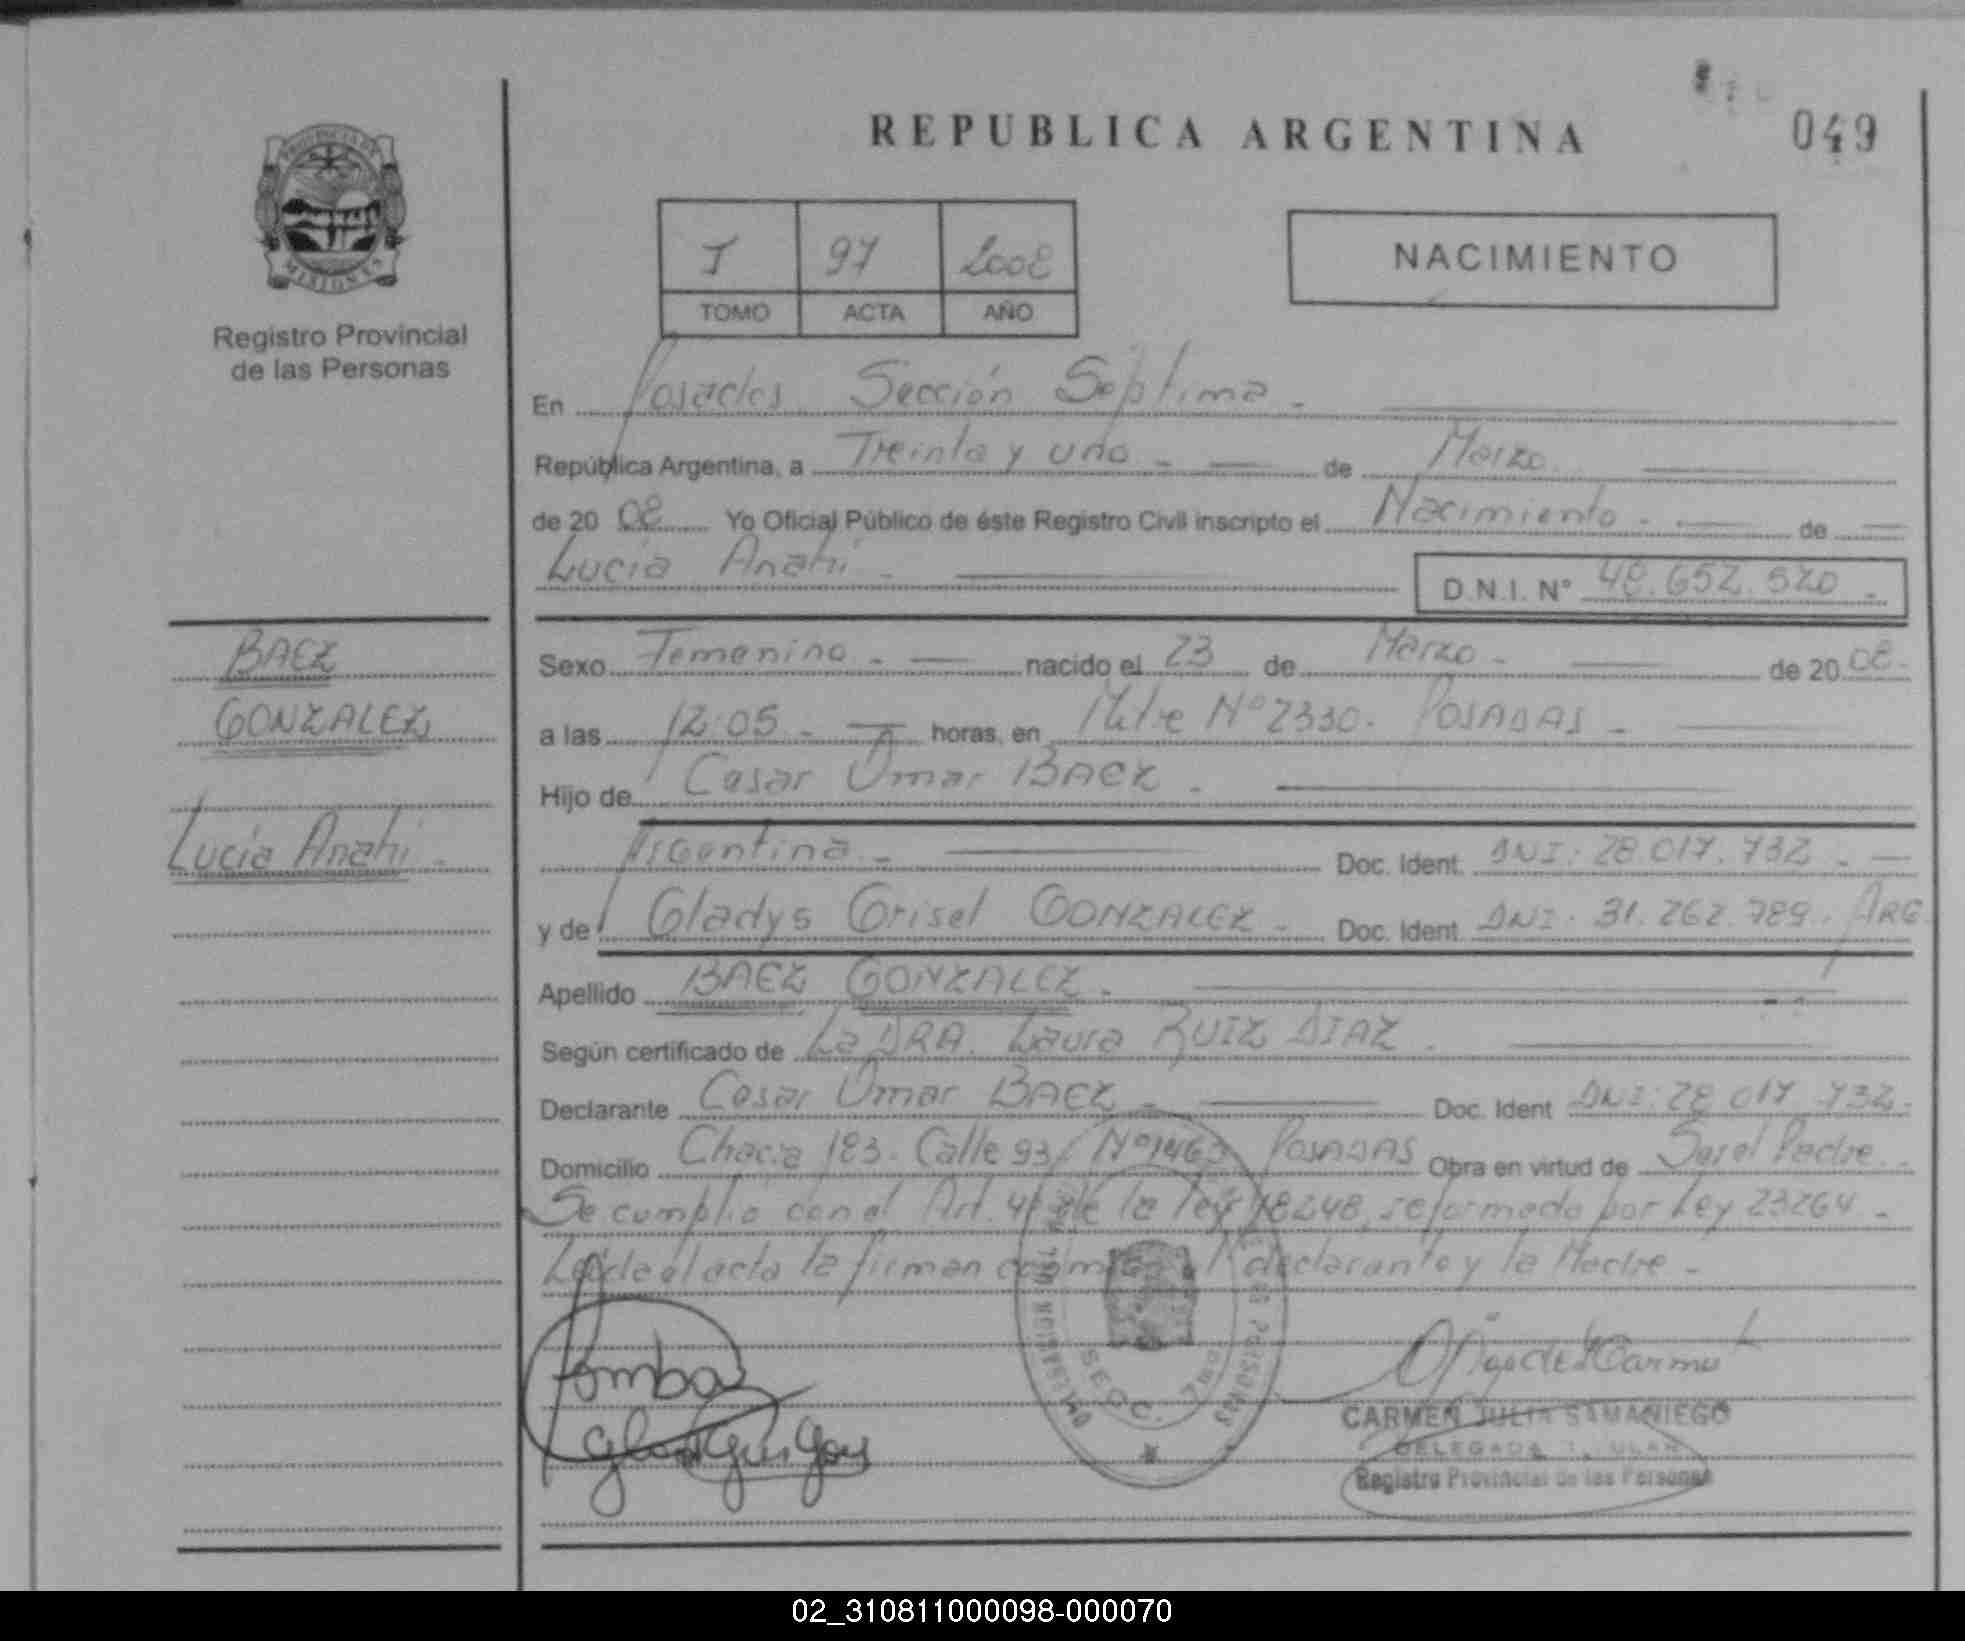 REPUBLICA ARGENTINA
049
PROVINCIA DE
MISIONES
Registro Provincial
de las Personas
I 97 2008
TOMO ACTA AÑO
NACIMIENTO
En Posadas Sección Septima -
República Argentina, a Treinta y uno - de Marzo
de 20 08 Yo Oficial Público de éste Registro Civil inscripto el Nacimiento - de
Lucia Anahi - D.N.I. Nº 48.652.520 -
BAEZ
GONZALEZ
Lucia Anahi -
Sexo Femenino - nacido el 23 de Marzo - de 20 08 -
a las 12:05 - horas, en Mitre Nº 2330. POSADAS -
Hijo de Cesar Omar BAEZ -
Argentina - Doc. Ident. DNI: 28.017.732 -
y de Gladys Grisel GONZALEZ - Doc. Ident. DNI: 31.262.789. ARG.
Apellido BAEZ GONZALEZ -
Según certificado de La DRA. Laura RUIZ DIAZ -
Declarante Cesar Omar BAEZ - Doc. Ident DNI: 28.017.732 -
Domicilio Chacra 183. Calle 93 Nº 1463 POSADAS Obra en virtud de Ser el Padre -
Se cumplio con el Art. 4º de la ley 18248, reformada por Ley 23264 -
Leida el acta la firman conmigo el declarante y la Madre -
SECC.
CARMEN JULIA SAMANIEGO
DELEGADA TITULAR
Registro Provincial de las Personas
02_310811000098-000070